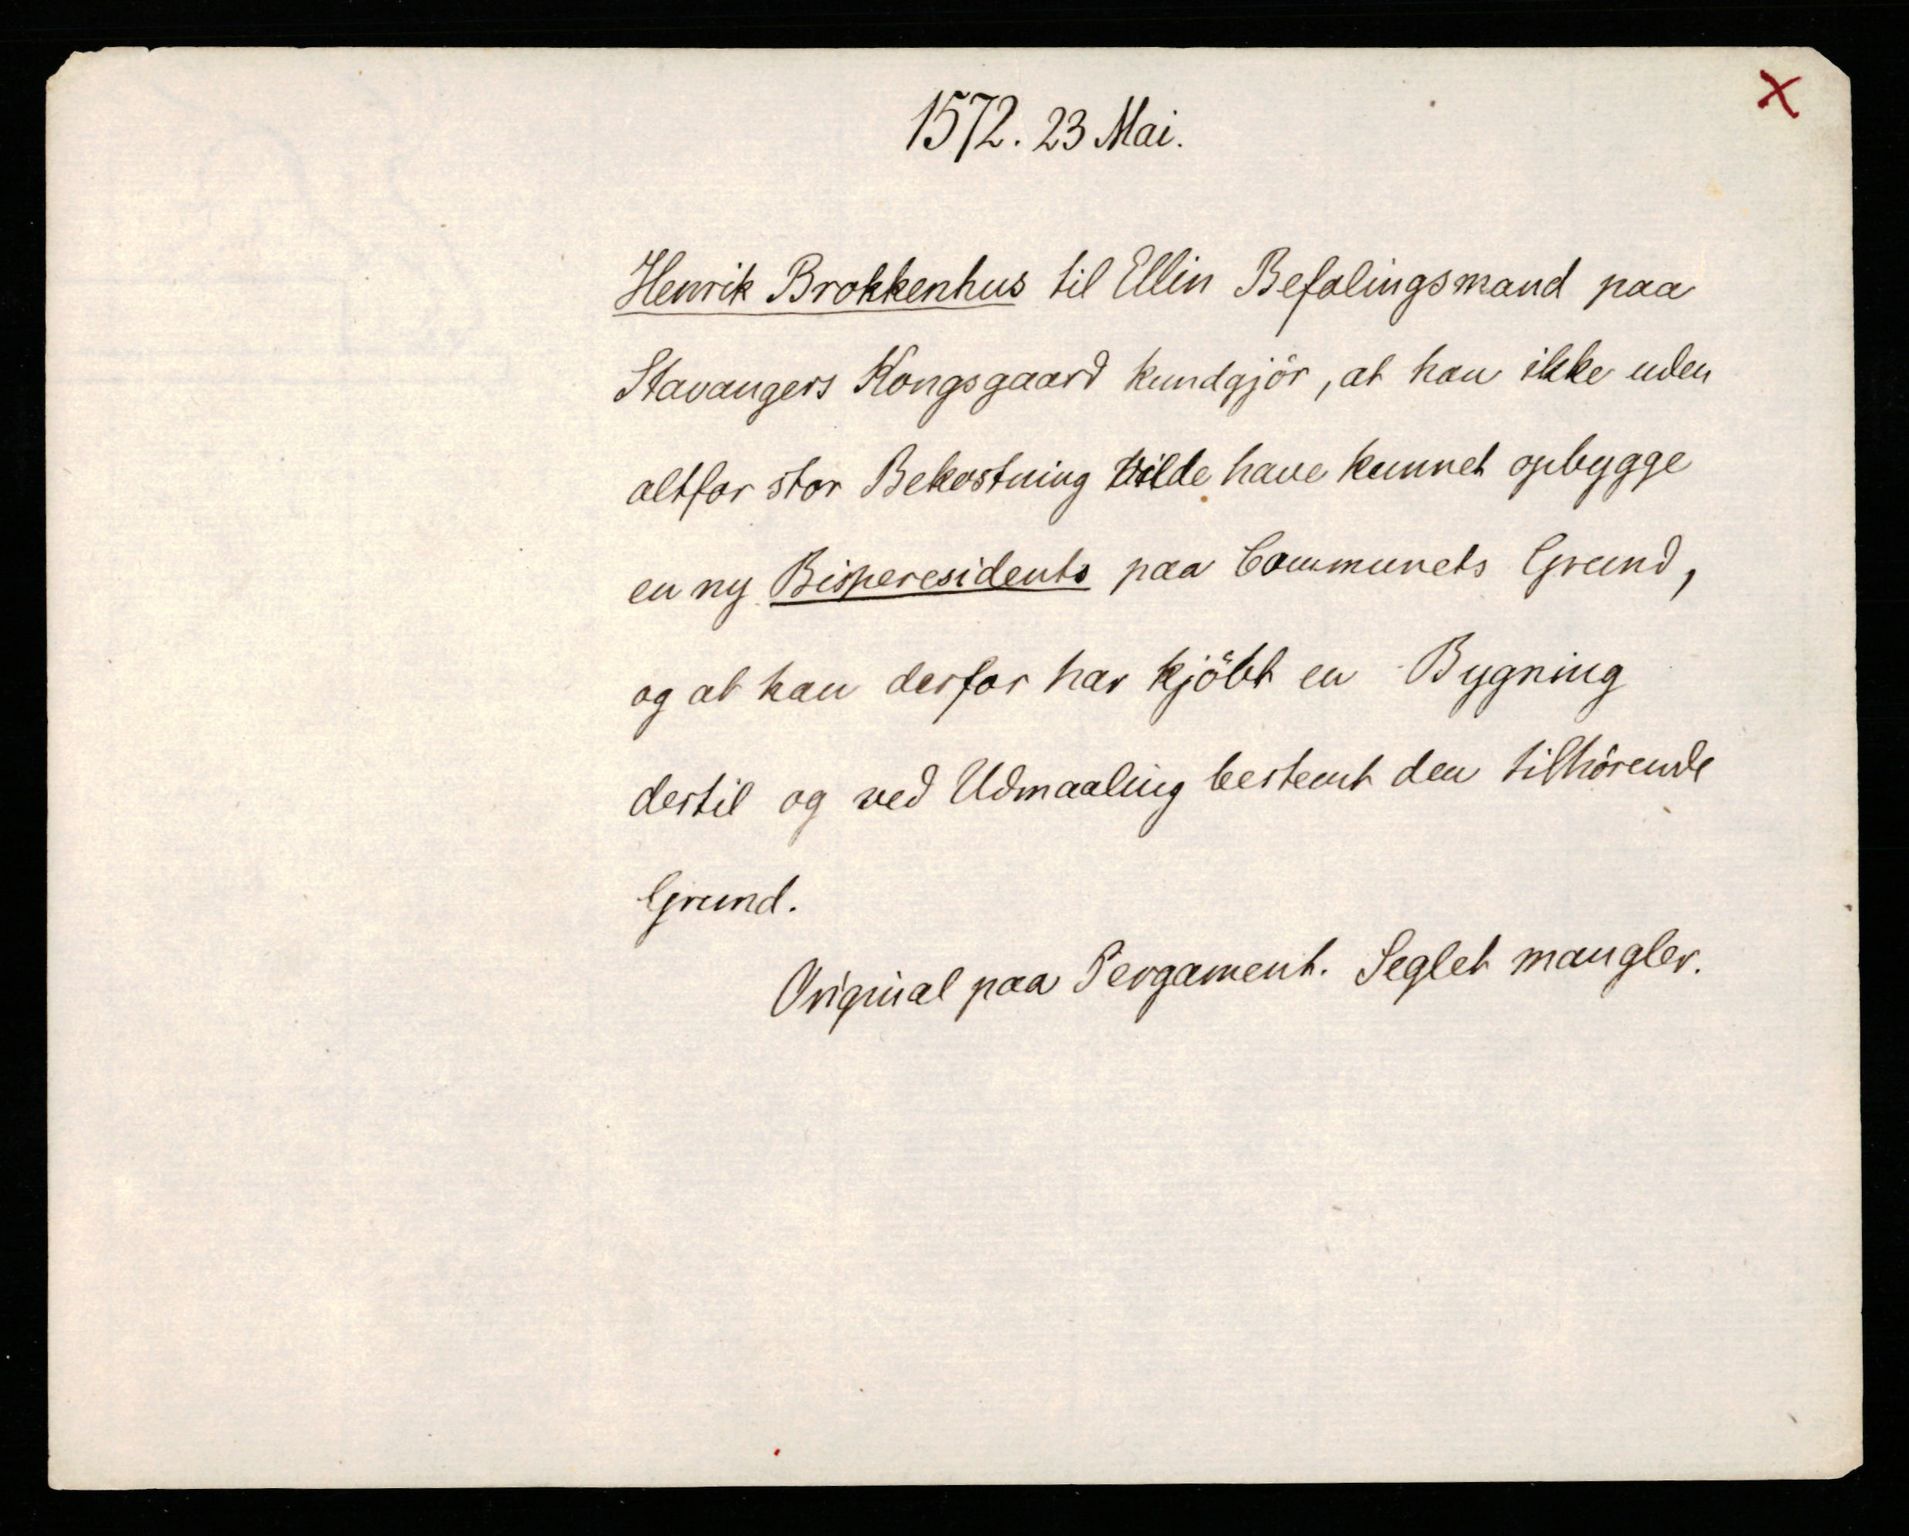 X
1572. 23 Mai.
Henrik Brokkenhus til Ellin Befalingsmand paa
Stavangers Kongsgaard kundgjör, at han ikke uden
altfor stor Bekostning vilde have kunnet opbygge
en ny Bisperesidents paa Communets Grund,
og at han derfor har kjöbt en Bygning
dertil og ved Udmaaling bestemt den tilhörende
Grund.
Original paa Pergament. Seglet mangler.